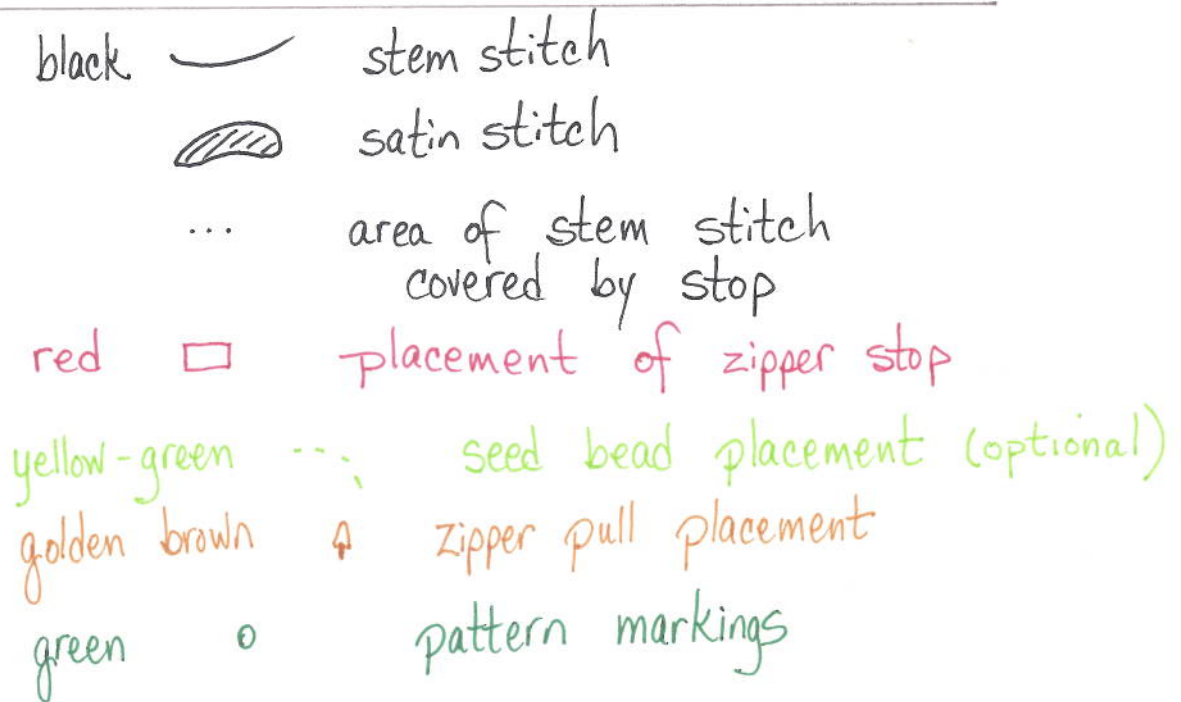 black stem stitch
satin stitch
... area of stem stitch
covered by stop
red placement of zipper stop
yellow-green seed bead placement (optional)
golden brown zipper pull placement
green pattern markings